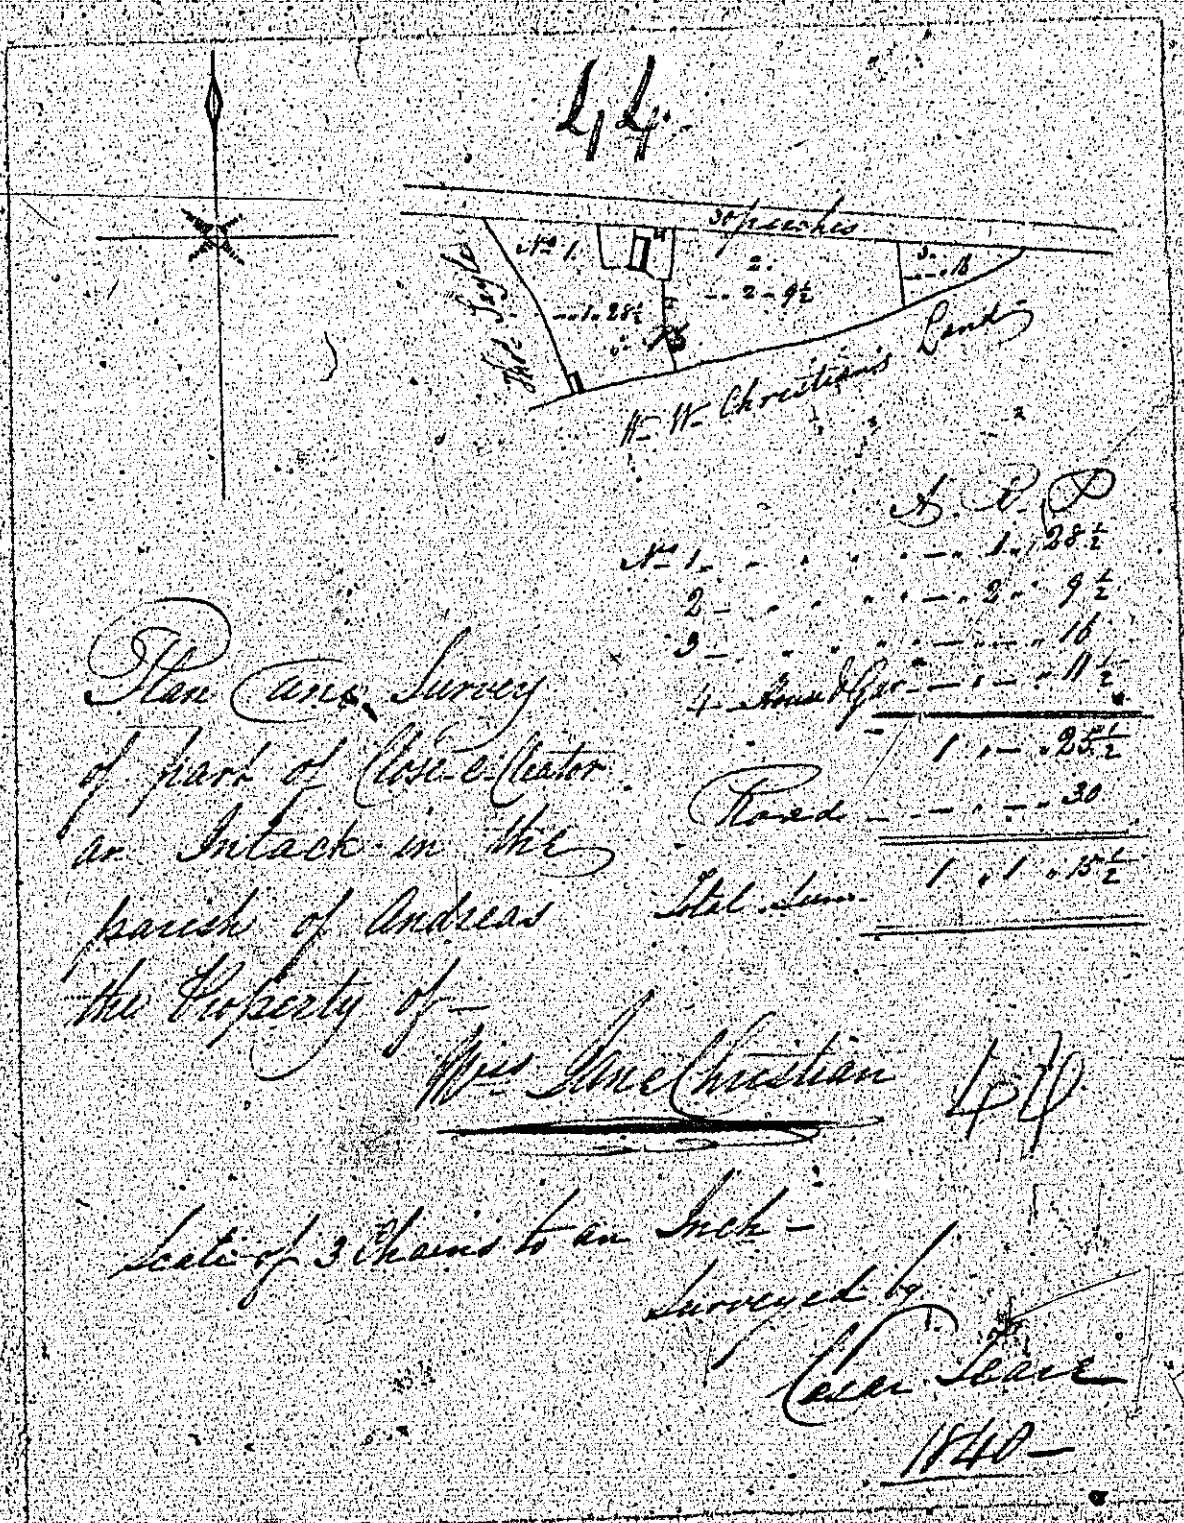 44
30 perches
No 1.
2.
3.
- - 16
- - 2 - 9½
- - 1 - 28½
4
W. W. Christian's Land
A. R. P
No 1 - - 1 - 28½
2 - - 2 - 9½
3 - - - 16
4 - House & Gar - - - 11½
1 - - 25½
Road - - - 30
Total Sum 1 1 15½
Plan and Survey
of part of Close-e-Cleator
an Intack in the
parish of Andreas
the Property of -
Miss Jane Christian
44
Scale of 3 Chains to an Inch -
Surveyed by
Cesar
1840 -